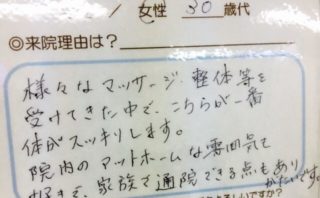 女性 30 歳代
◎来院理由は？
様々なマッサージ、整体等を
受けてきた中で、こちらが一番
体がスッキリします。
院内のアットホームな雰囲気も
好きで、家族で通院できる点もあり
がたいです。
ですか？